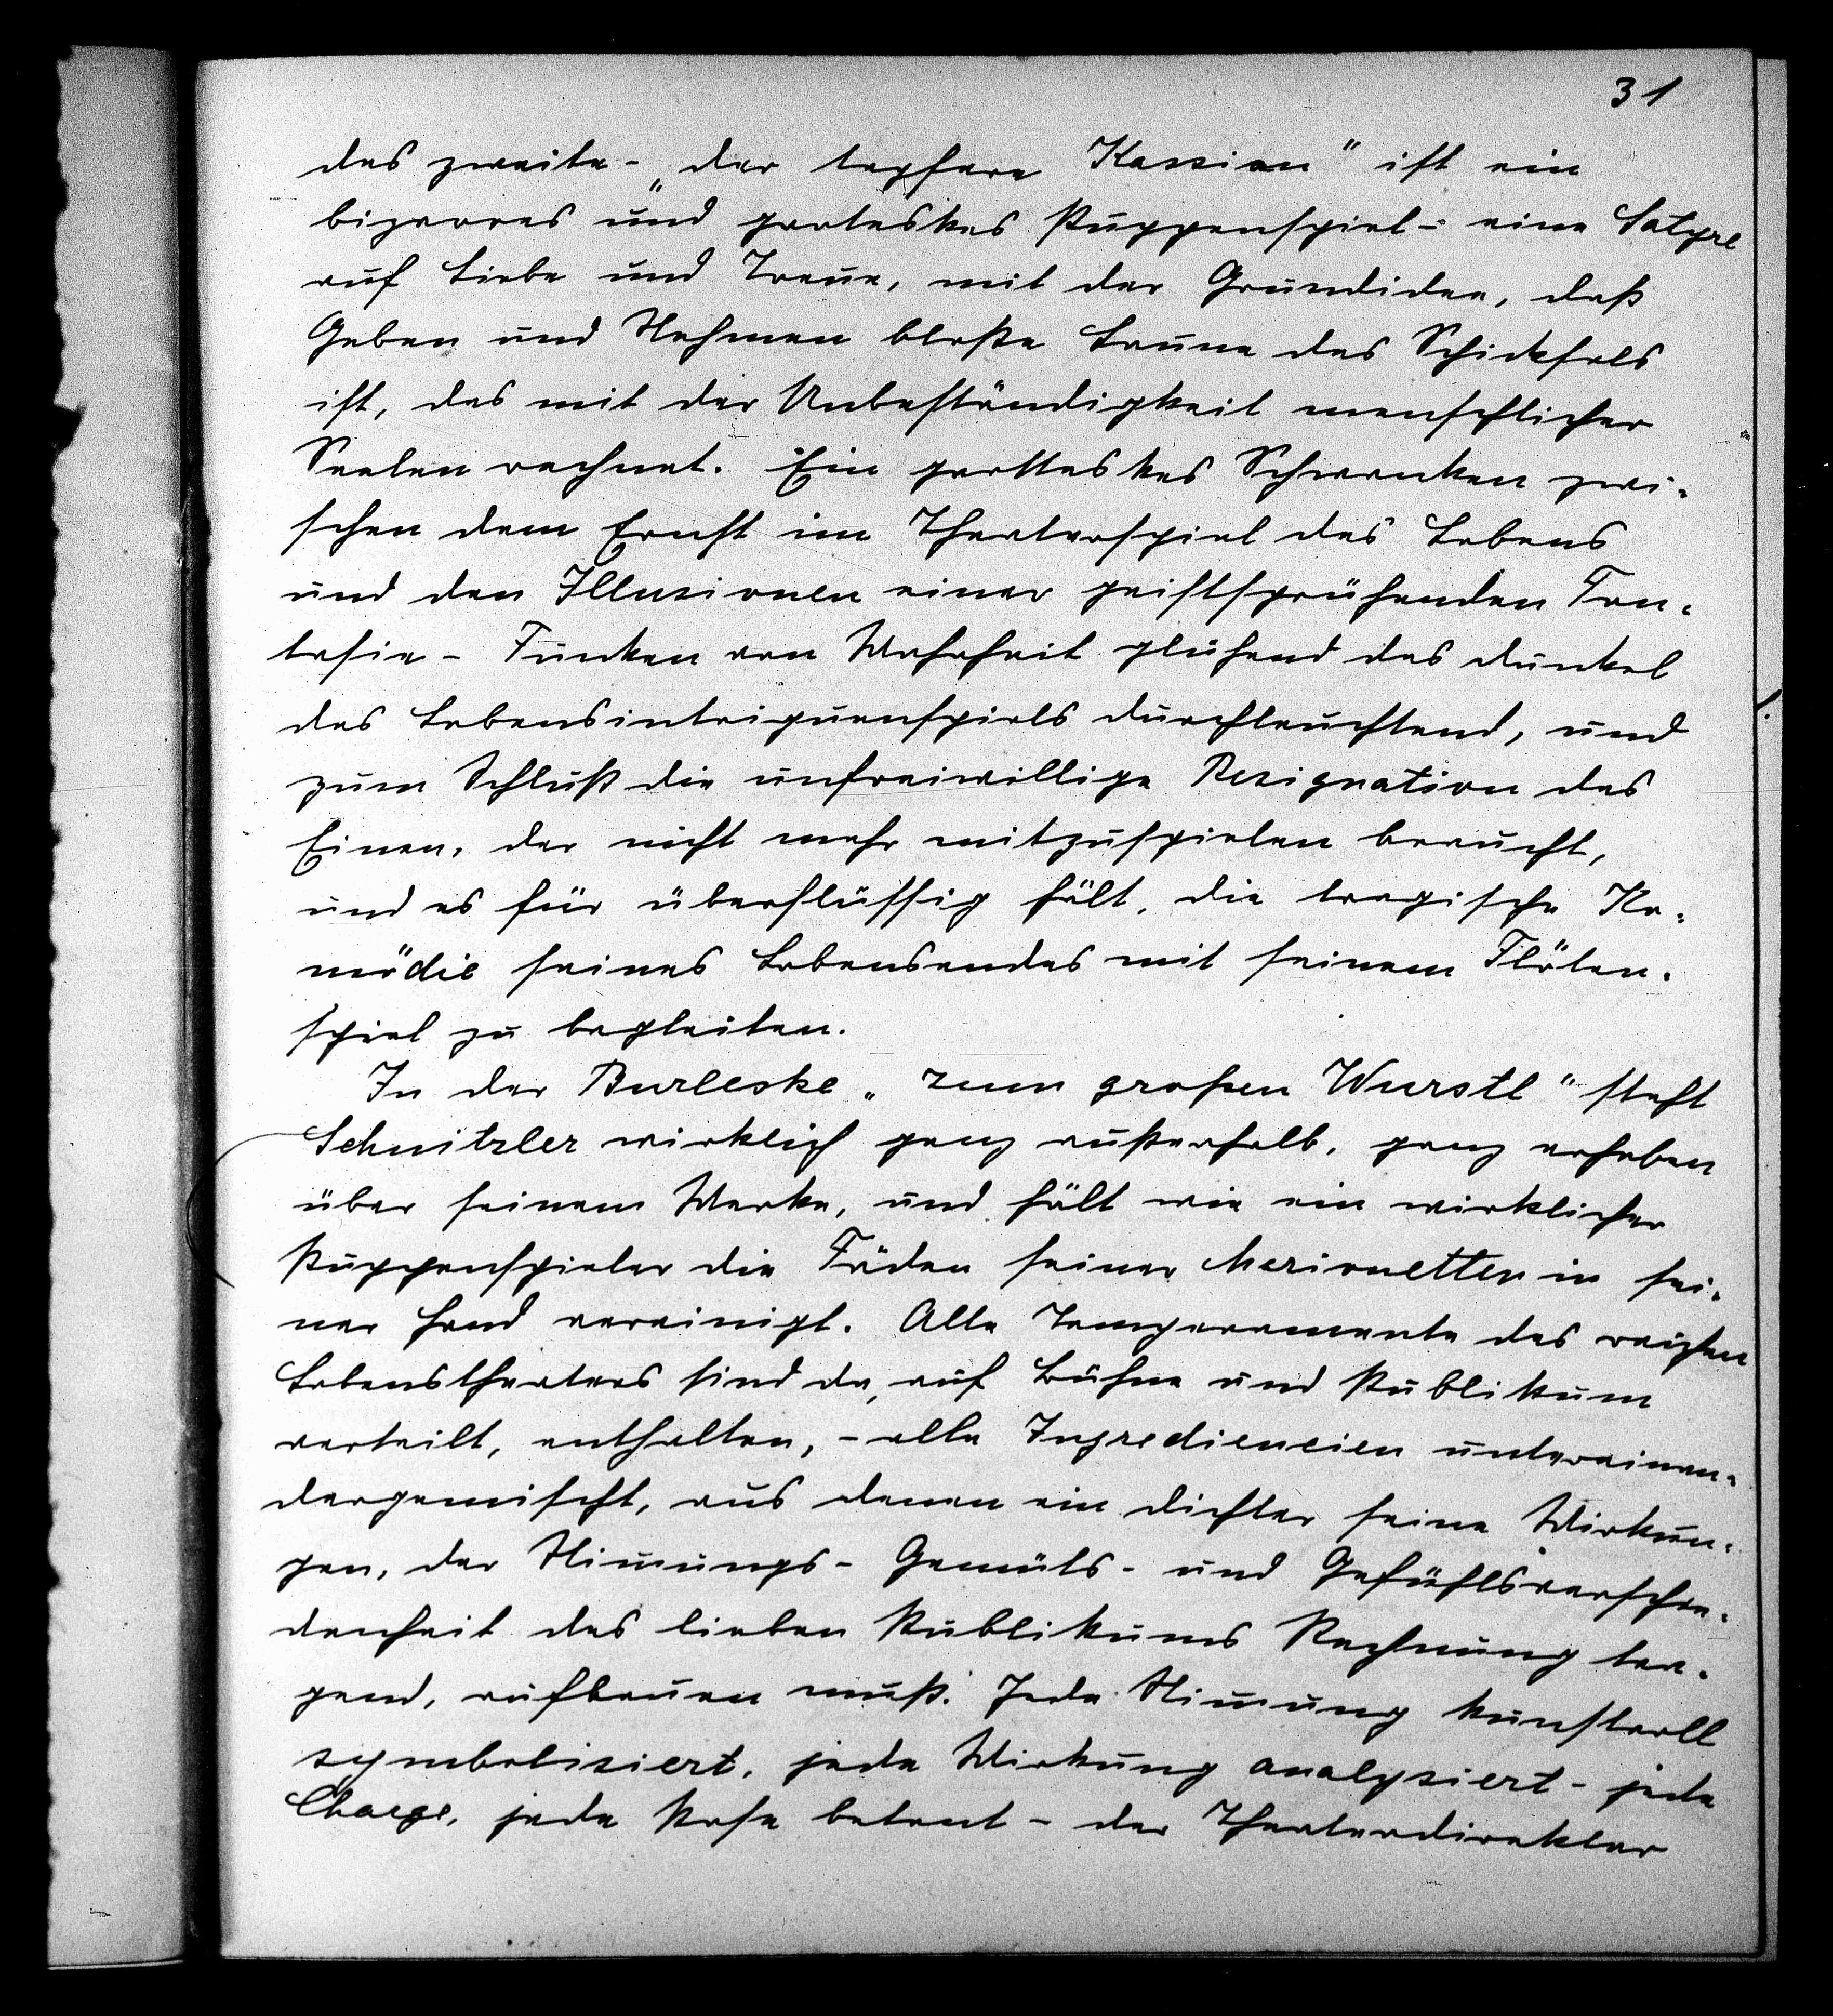 31
das zweite - „der tapfere Kassian" ist ein
bizarres und groteskes Puppenspiel - eine Satyre
auf Liebe und Treue, mit der Grundidee, daß
Geben und Nehmen bloße Laune des Schicksals
ist, das mit der Unbeständigkeit menschlicher
Seelen rechnet. Ein grotteskes Schwanken zwi-
schen dem Ernst im Theaterspiel des Lebens
und den Illusionen einer geistsprühenden Fan-
tasie - Funken von Wahrheit glühend das dunkel
des Lebensintriguenspiels durchleuchtend, und
zum Schluß die unfreiwillige Resignation des
Einen, der nicht mehr mitzuspielen braucht,
und es für überflüssig hält, die tragische Ko-
mödie seines Lebensendes mit seinem Flöten-
spiel zu begleiten.
In der Burleske „zum großen Wurstl" steht
Schnitzler wirklich ganz außerhalb, ganz erhaben
über seinem Werke, und hält wie ein wirklicher
Puppenspieler die Fäden seiner Marionetten in sei-
ner Hand vereinigt. Alle Temperamente des
Lebenstheaters sind da, auf Bühne und Publikum
verteilt, enthalten, - alle Ingrediencien untereinan-
dergemischt, aus denen ein dichter seine Wirkun-
gen, der Stim̅ungs- Gemüts- und Gefühlsverschie-
denheit des lieben Publikums Rechnung tra-
gend, aufbauen muß. Jede Stim̅ung kunstvoll
symbolisiert, jede Wirkung analysiert - jede
Charge, jede Pose betont - der Theaterdirektor